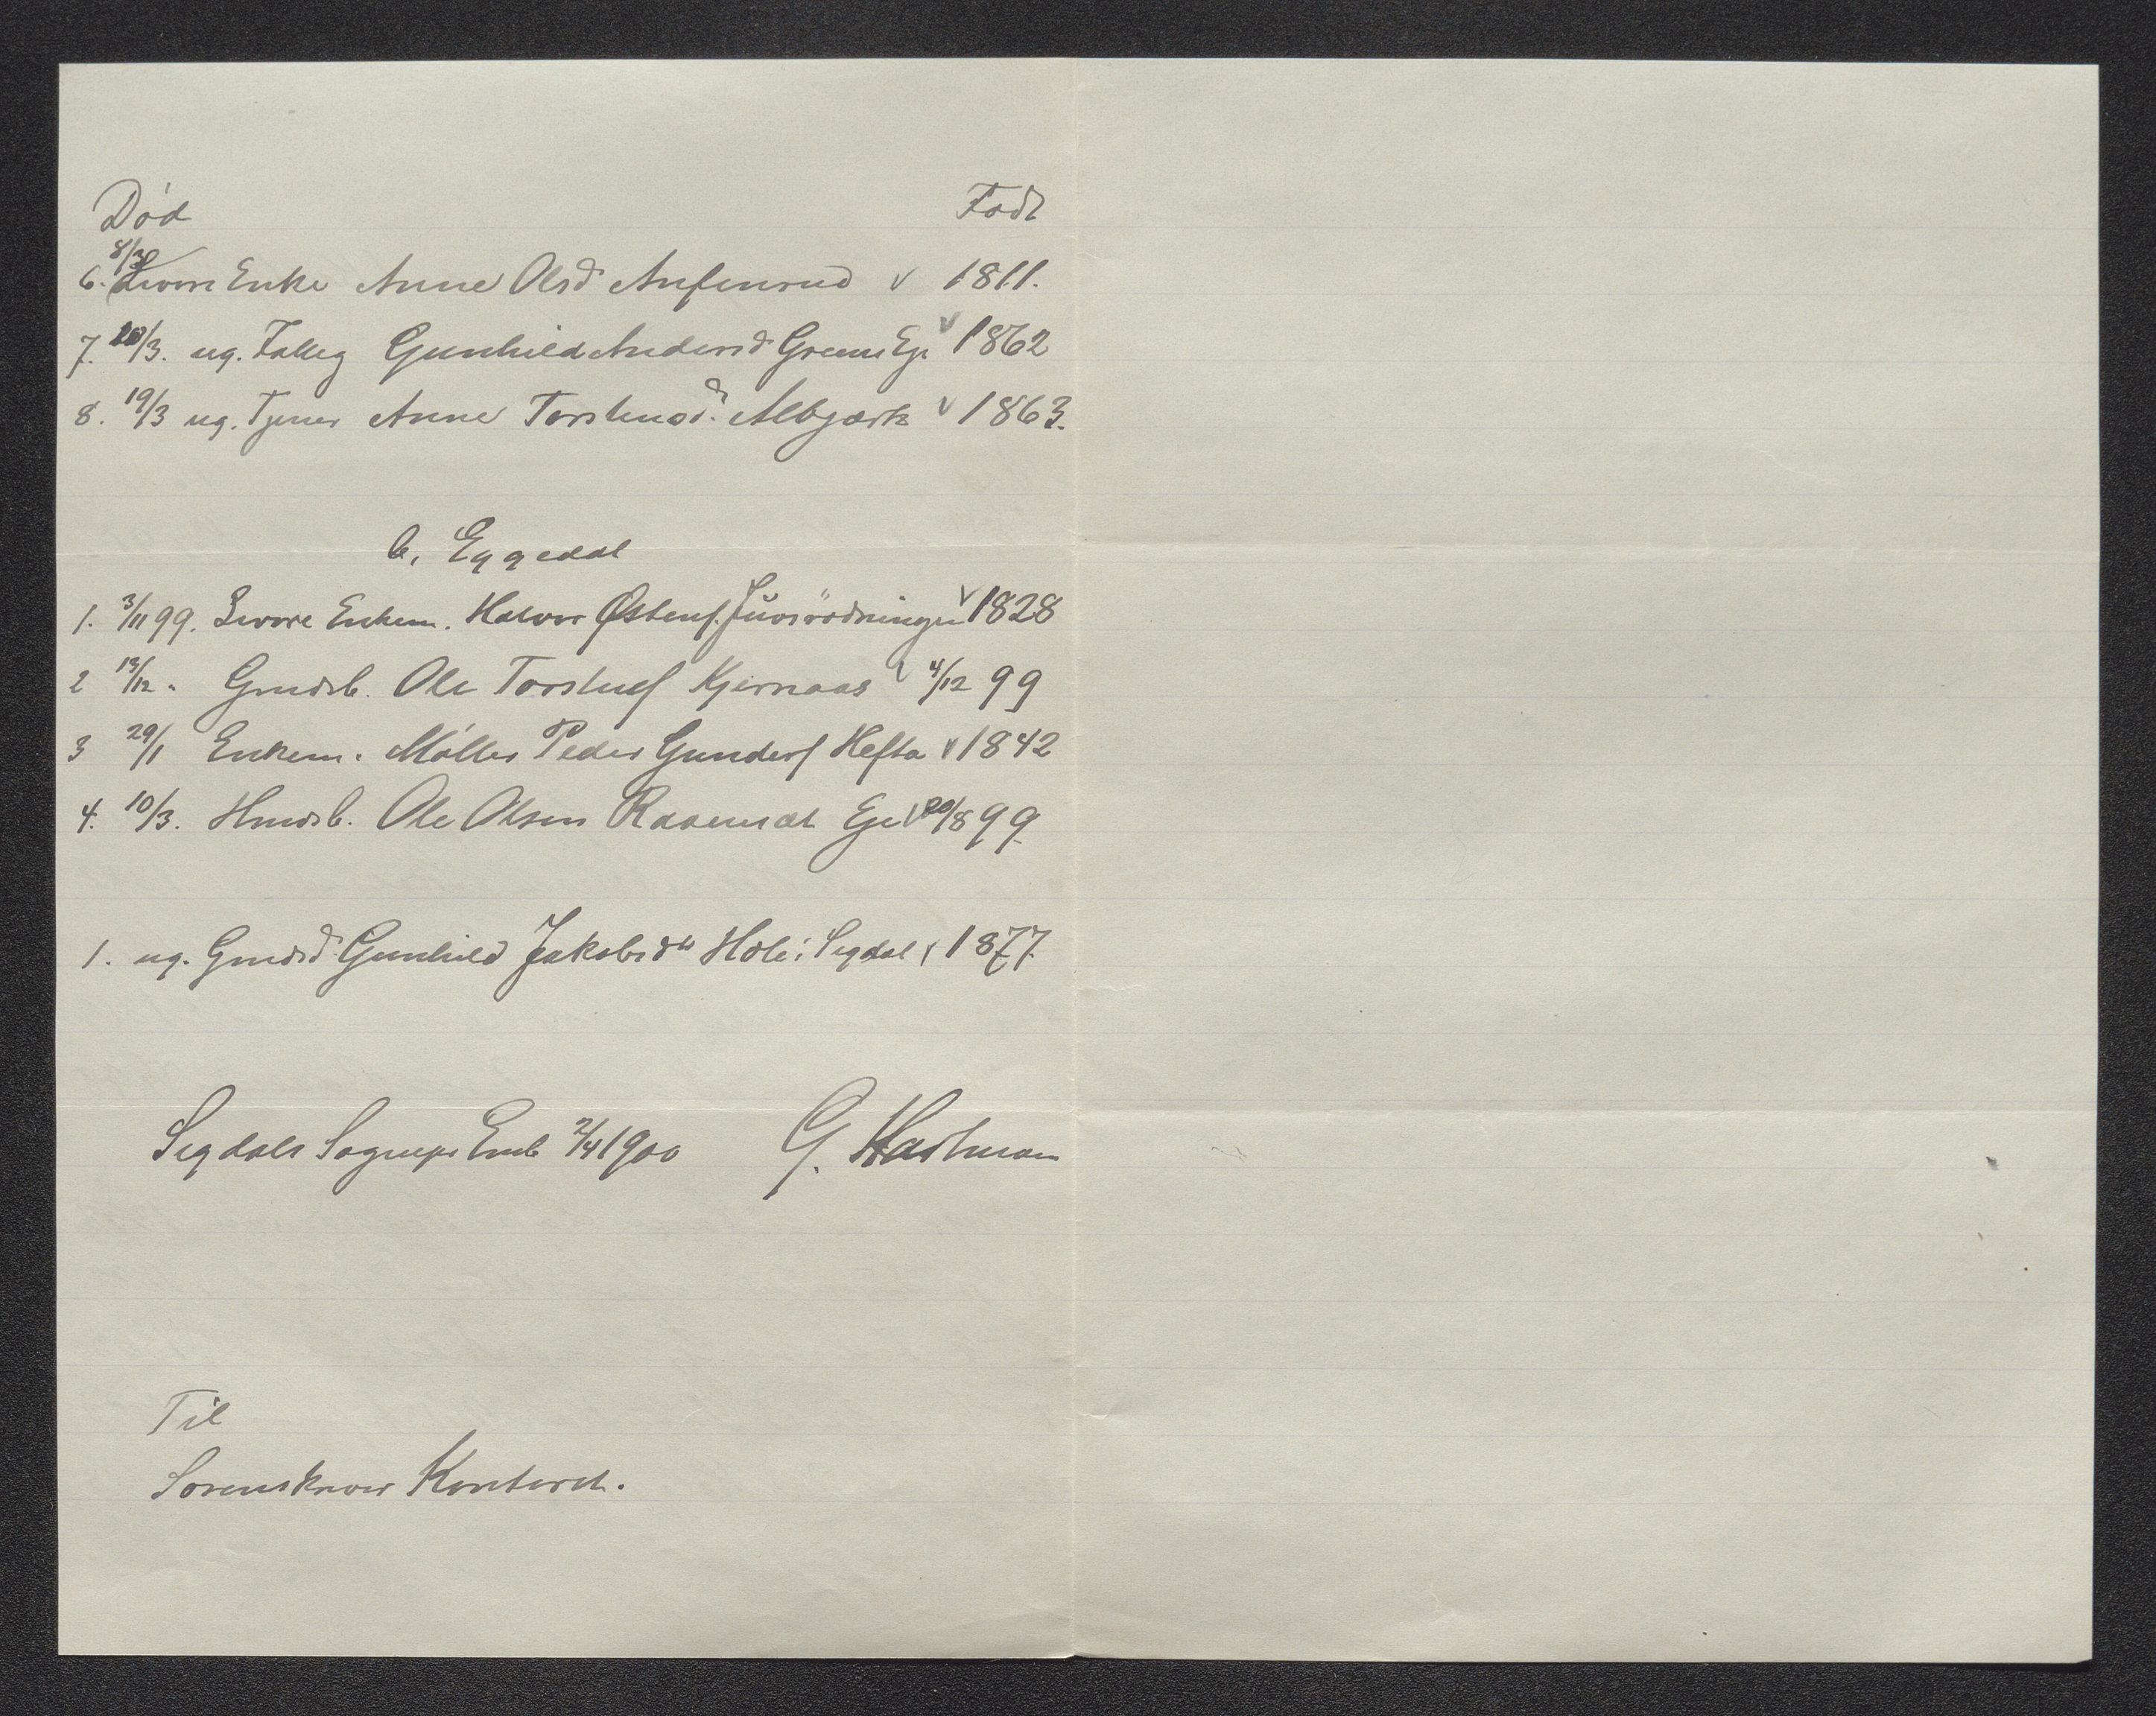 Död Födt
6. 8/3 Levore Enke Anne Olsd Anfinrud v 1811.
7. 10/3. ug. Fattig Gunhild Andersd Green Eje v 1862
8. 19/3 ug. Tjener Anne Torstensd. Albjærk v 1863.
b. Eggedal
1. 3/11 99. Levore Enkem. Halvor Østens. v 1828
2 13/12. Grmdsb. Ole Torstens Kjernaas v 4/12 99
3 29/1 Enkem. Møller Peder Gunders Hefta v 1842
4. 10/3. Hmdsb. Ole Olsen Ravnaas Eje v 20/8 99.
1. ug. Grmdsd Gunhild Jakobsdtr Hole i Sigdal v 1877.
Sigdals Sognepr Emb 2/4 1900 G. Hartmann
Til
Sorenskriver Kontoret.